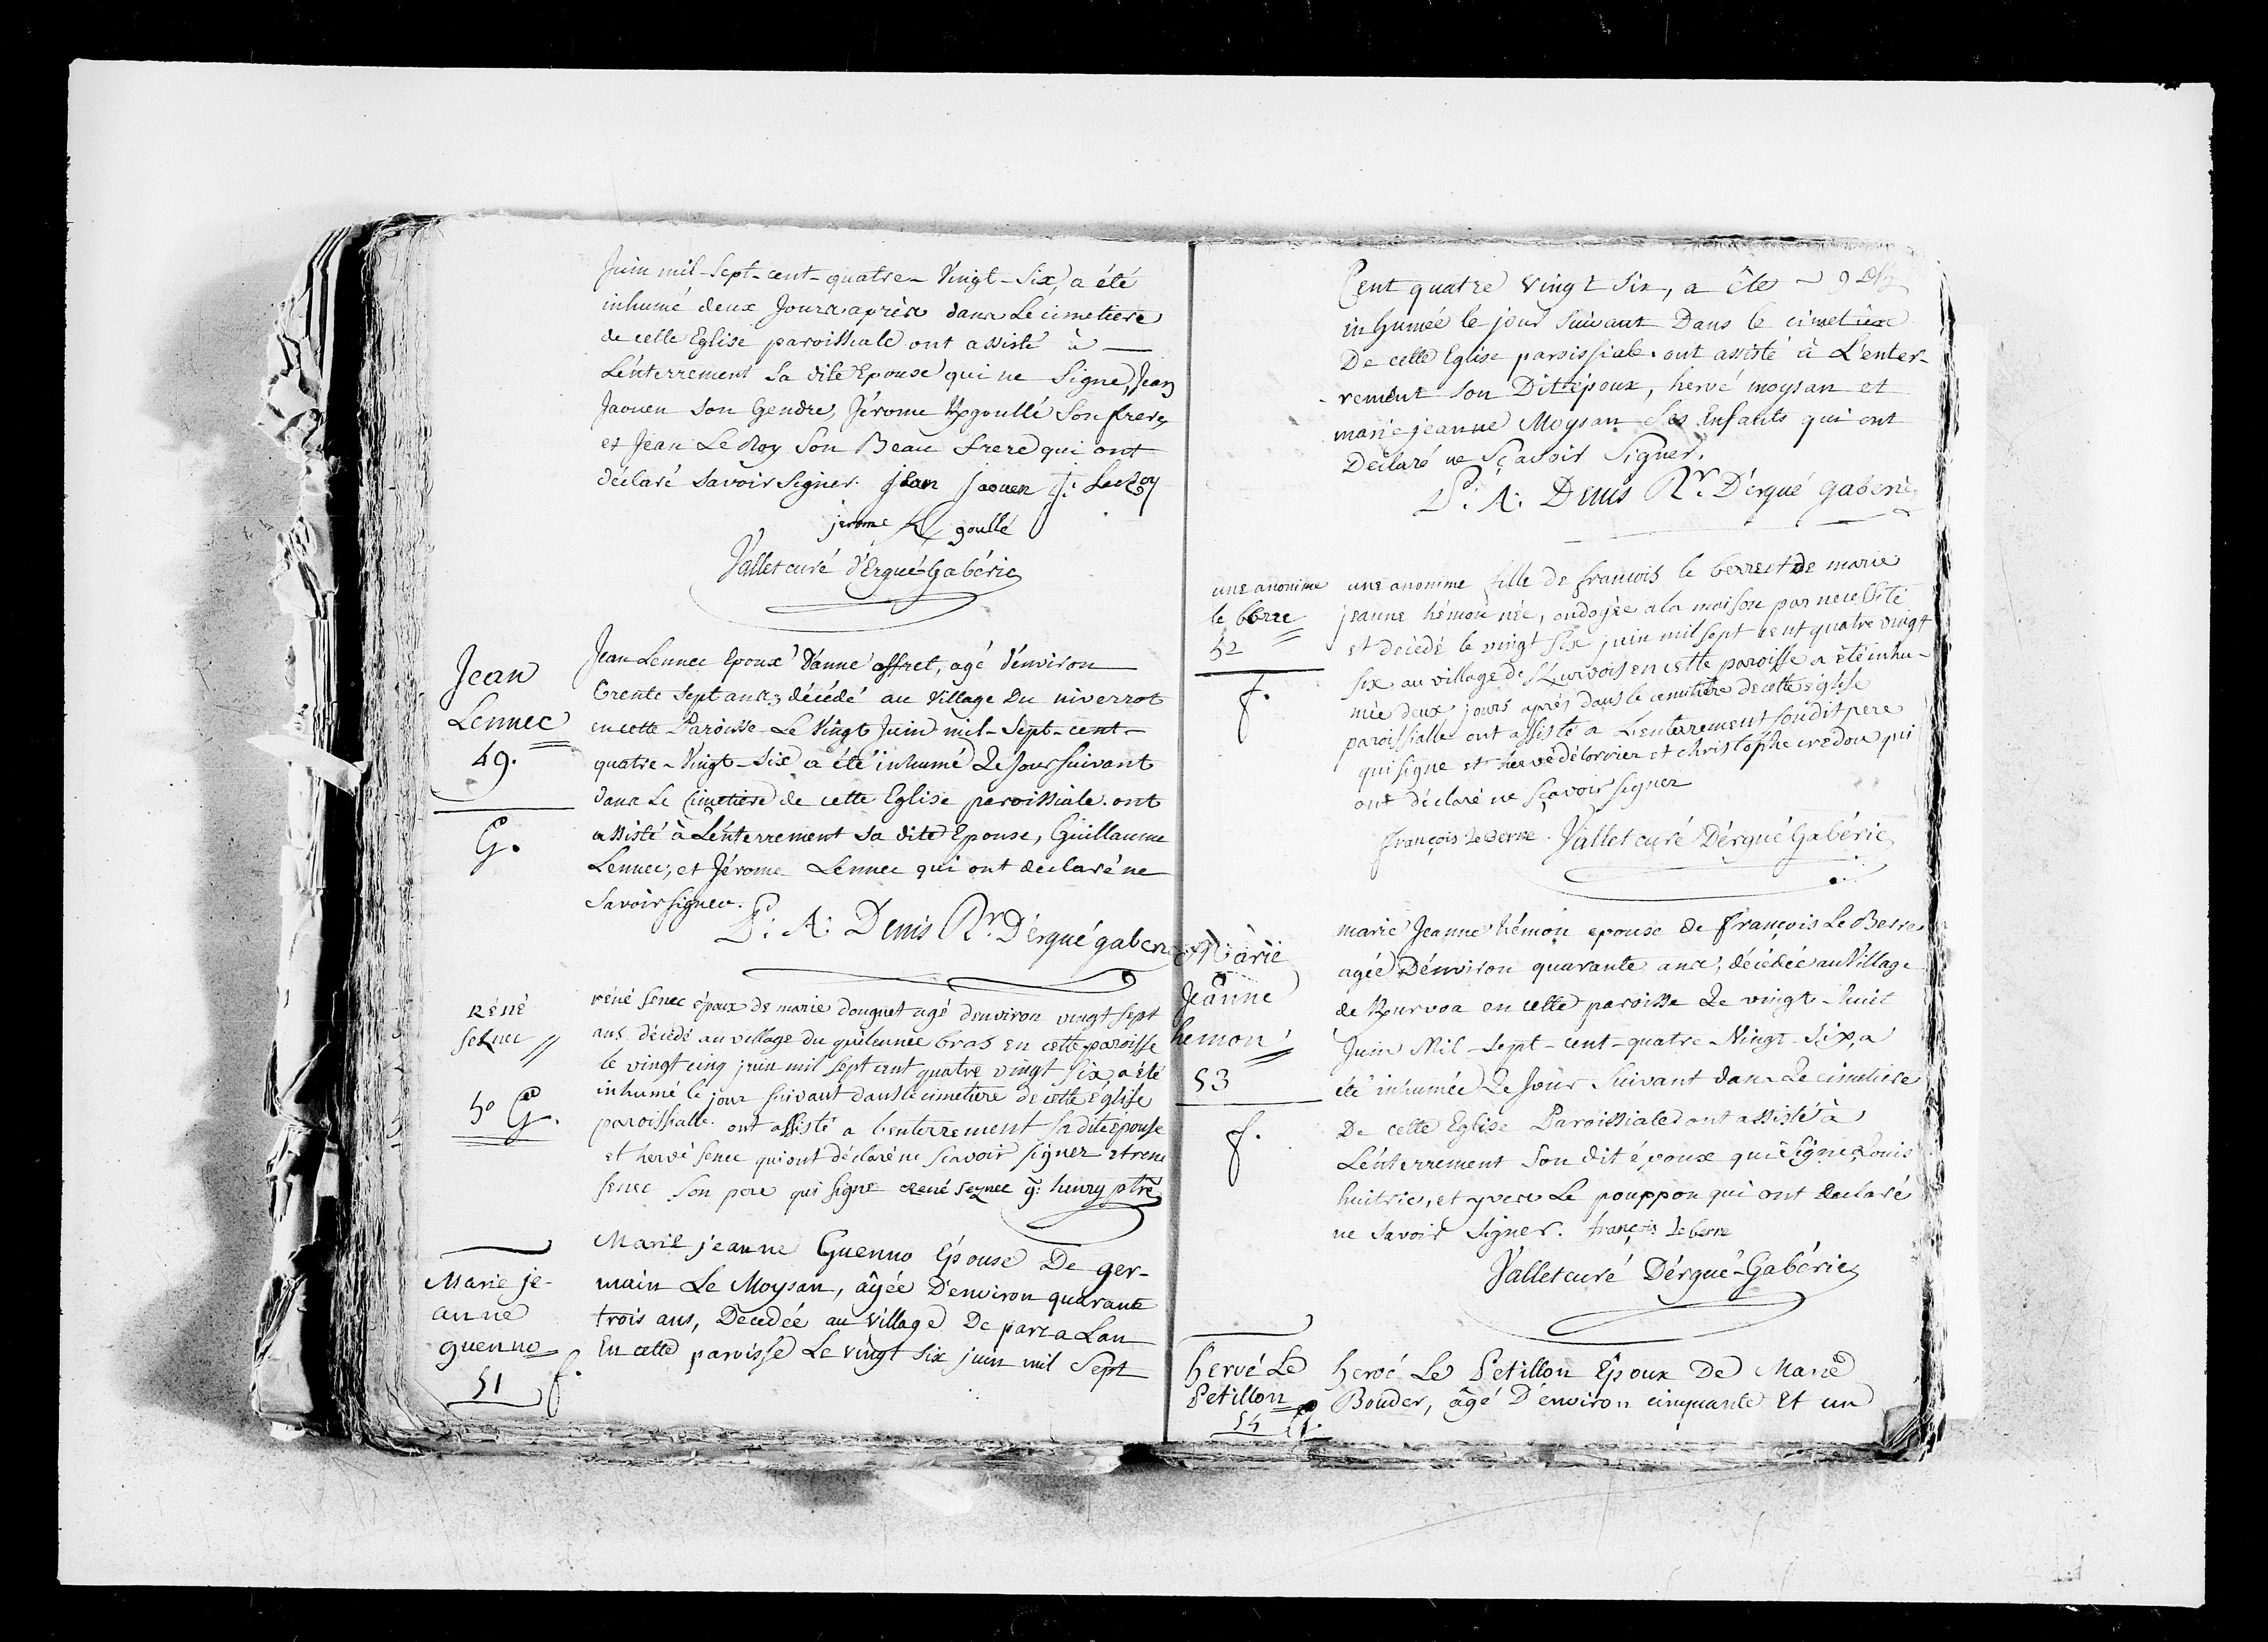 Juin mil-Sept-cent-quatre-Vingt-Six, a été
inhumé deux Jours après dans Le cimetiere
de cette Eglise paroissiale ont assisté à
L'enterrement Sa dite Epouse qui ne Signe, Jean
Jaouen Son Gendre, Jérome Kgoullé Son frere,
et Jean Le Roy Son Beau frere qui ont
déclaré savoir signer. jean jaouen J: Le Roy
jerome K goullé
Vallet curé d'Ergué-Gabéric
Jean
Lennec
49.
G.
Jean Lennec Epoux d'anne affret, agé d'environ
trente Sept ans, décédé au Village Du niverrot
en cette Paroisse Le Vingt Juin mil-Sept-cent-
quatre-Vingt-Six a été inhumé Le Jour Suivant
dans Le Cimetiere de cette Eglise paroissiale. ont
assisté à L'enterrement Sa dite Epouse, Guillaume
Lennec, et Jérome Lennec qui ont declaré ne
Savoir signer.
P: A: Denis Rr. D'ergué gaberic
Réné
seznec
50 G.
réné senec époux de marie douguet agé denviron vingt sept
ans, décédé au village du quélennec bras en cette paroisse
le vingt cinq juin mil sept cent quatre vingt six a été
inhumé le jour suivant dans le cimetiere de cette église
paroissialle. ont assisté a l'enterrement sa dite épouse
et hervé senec qui ont déclaré ne scavoir signer et rene
senec son pere qui signe René seznec g: henry ptre
Marie je-
anne
guenno
51 f.
Marie jeanne Guenno Epouse De ger-
main Le Moysan, âgée D'environ quarante
trois ans, Decedée au village De parc a Lan
En cette paroisse Le vingt six juin mil Sept
Cent quatre vingt Six, a été
inhumée le jour suivant Dans le cimetiere
De cette Eglise paroissiale. ont assisté à L'enter-
rement son Dit époux, hervé moysan et
marie jeanne Moysan Ses Enfants qui ont
Declaré ne Sçavoir Signer.
P: A: Denis Rr. D'ergué gaberic
une anonime
le berre
52
f.
une anonime fille de francois le berre et de marie
jeanne hémon née, ondoyée a la maison par necessité
et décédé le vingt six juin mil sept cent quatre vingt
six au village de Kurvois en cette paroisse a été inhu-
mée deux jours aprés dans le cemitiere de cette église
paroissialle ont assisté a l'enterrement son dit pere
qui signe et hervé délorvier et christophe credou qui
ont déclaré ne sçavoir signer
françois le berre. Vallet curé D'érgué Gabéric
Marie
Jeanne
hemon
53
f.
marie Jeanne hémon epouse de françois Le Berre
agée D'énviron quarante ans, décédée au Village
de Kurvoa en cette paroisse Le vingt-huit
Juin Mil-Sept-cent-quatre-Vingt-Six, a
été inhumée Le Jour Suivant dans Le cimetiere
De cette Eglise Paroissiale ont assisté à
L'énterrement Son dit époux qui Signe, Louis
huitric, et yves Le pouppon qui ont declaré
ne savoir Signer. françois le berre
Vallet curé D'érgué-Gabéric
hervé Le
Petillon
54 G.
hervé Le Petillon Époux De Marie
Bouder, âgé D'environ cinquante Et un